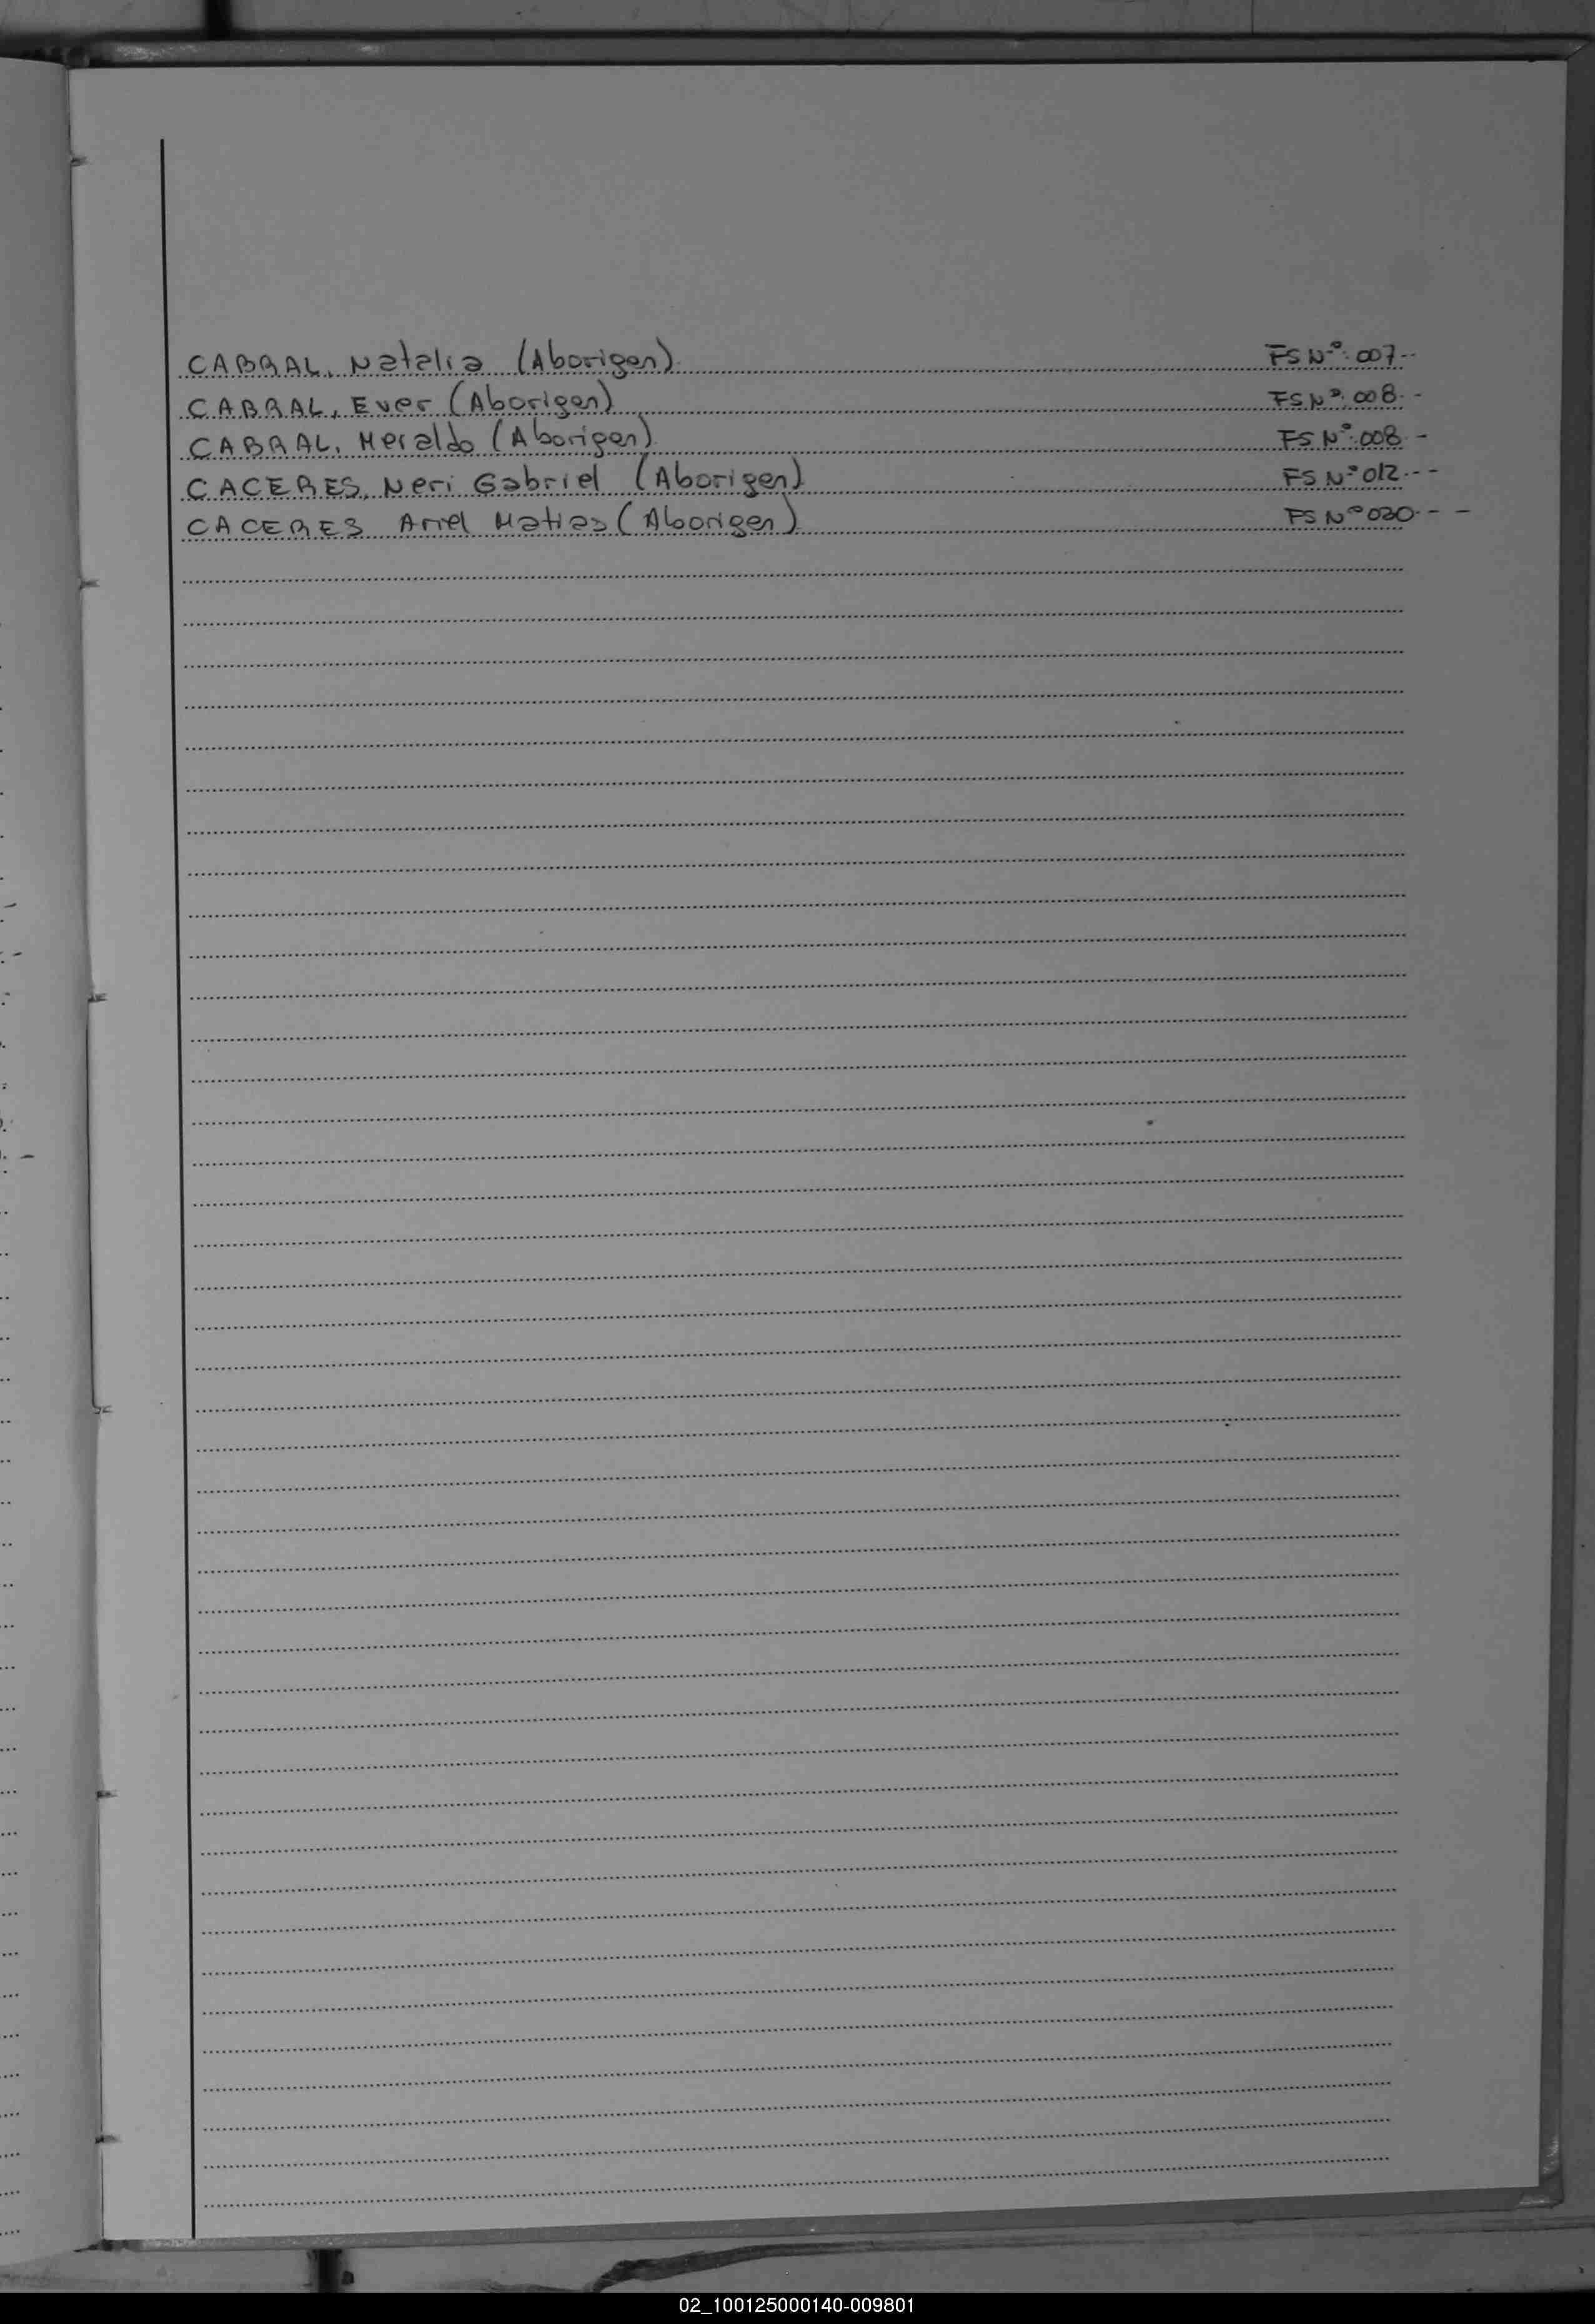 CABRAL, Natalia (Aborigen) FS Nº: 007--
CABRAL, Ever (Aborigen) FS Nº: 008. -
CABRAL, Heraldo (Aborigen) FS Nº: 008 -
CACERES, Neri Gabriel (Aborigen) FS Nº 012---
CACERES Ariel Matias (Aborigen) FS Nº 020- -
02_100125000140-009801